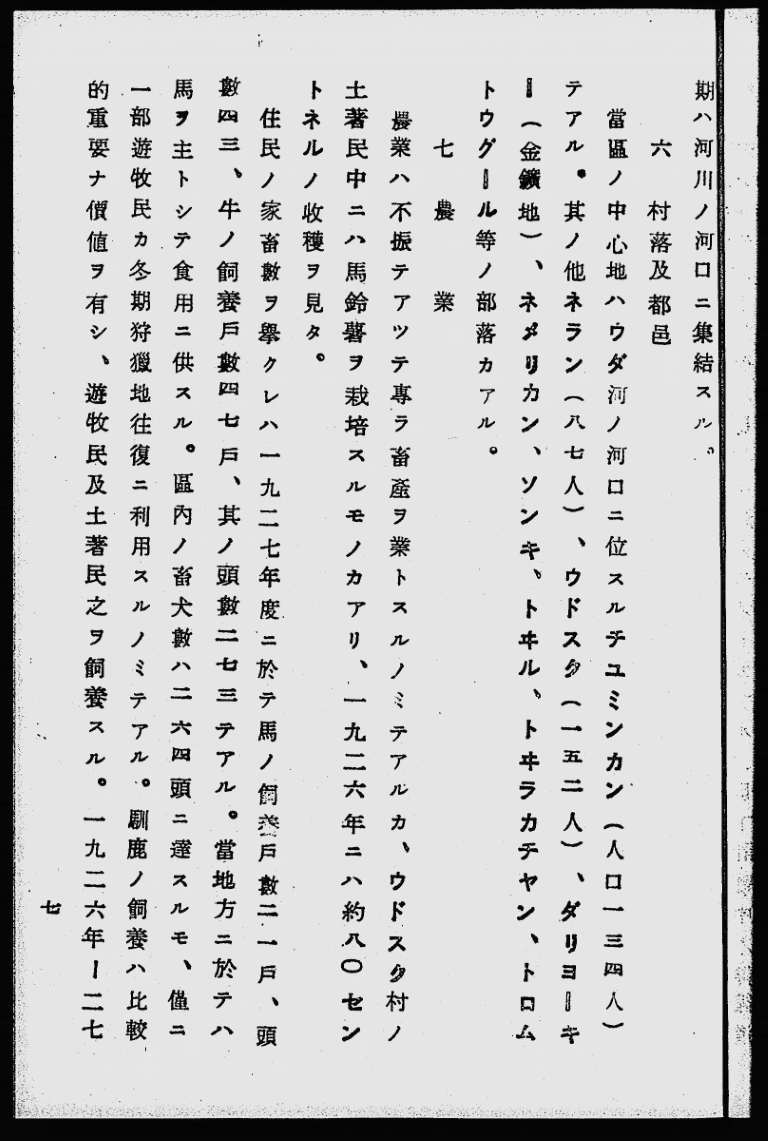 期ハ河川ノ河口ニ集結スル。
六 村落及都邑
當區ノ中心地ハウダ河ノ河口ニ位スルチユミンカン（人口一三四人）
テアル。其ノ他ネラン（八七人）、ウドスク（一五二人）、ダリヨーキ
ー（金鑛地）、ネメリカン、ソンキ、トヰル、トヰラカチヤン、トロム
トウグール等ノ部落カアル。
七 農業
農業ハ不振テアツテ專ラ畜產ヲ業トスルノミテアルカ、ウドスク村ノ
土著民中ニハ馬鈴薯ヲ栽培スルモノカアリ、一九二六年ニハ約八〇セン
トネルノ收穫ヲ見タ。
住民ノ家畜數ヲ擧クレハ一九二七年度ニ於テ馬ノ飼養戶數二一戶、頭
數四三、牛ノ飼養戶數四七戶、其ノ頭數二七三テアル。當地方ニ於テハ
馬ヲ主トシテ食用ニ供スル。區內ノ畜犬數ハ二六四頭ニ達スルモ、僅ニ
一部遊牧民カ冬期狩獵地往復ニ利用スルノミテアル。馴鹿ノ飼養ハ比較
的重要ナ價値ヲ有シ、遊牧民及土著民之ヲ飼養スル。一九二六年ー二七
七